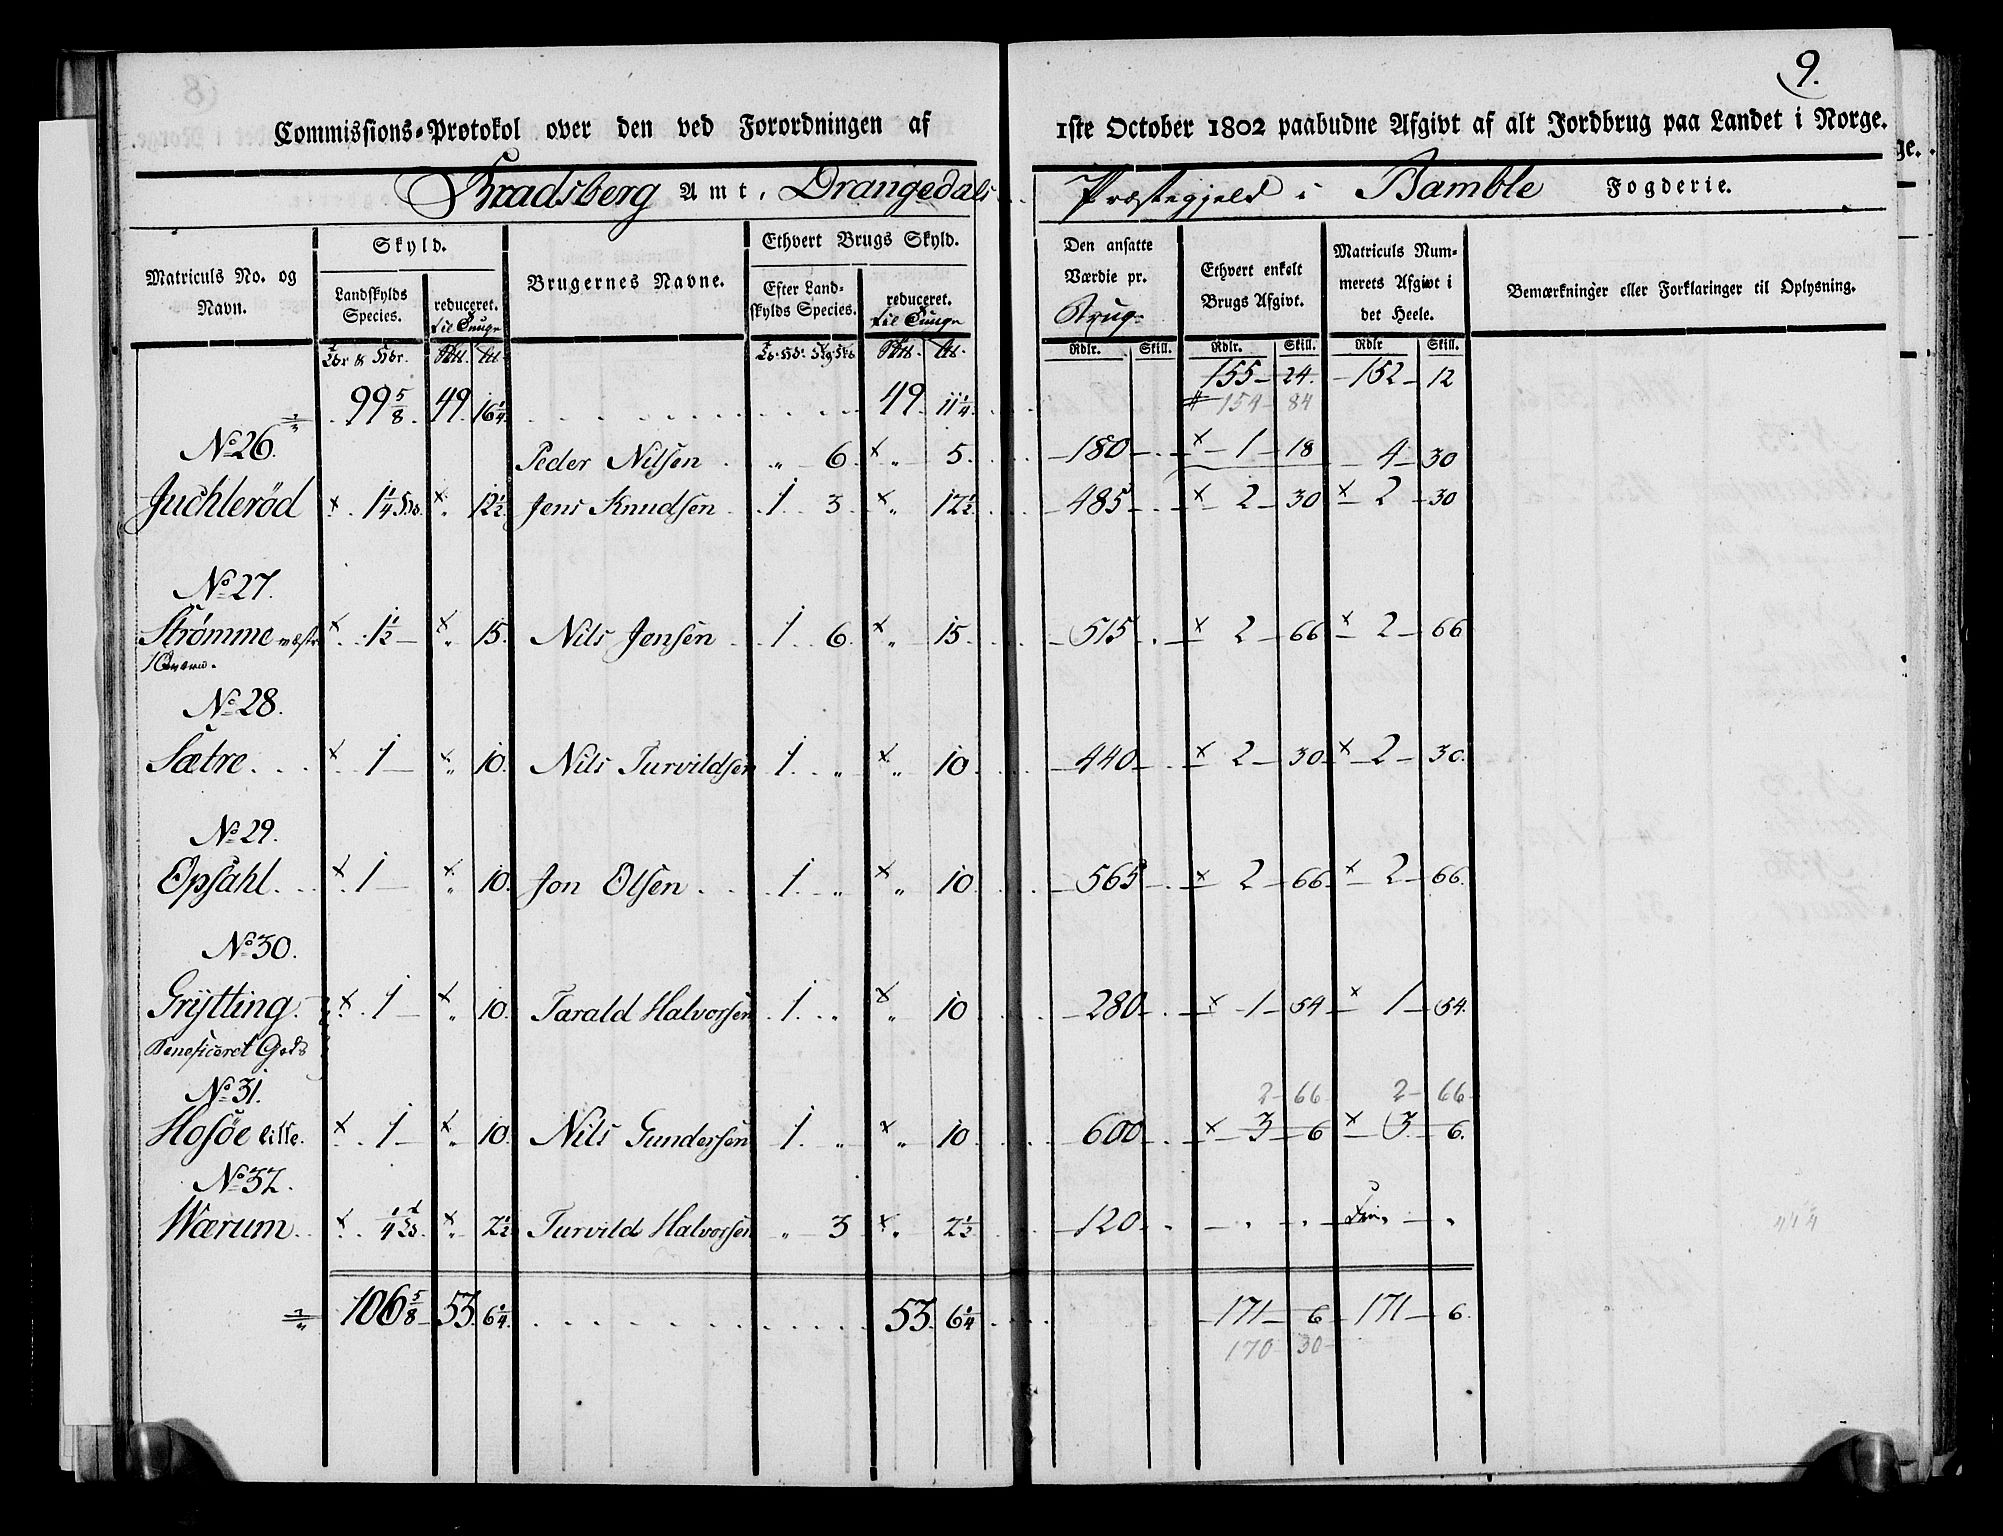 9.
Commissions-Protokol over den ved Forordningen af 1ste October 1802 paabudne Afgivt af alt Jordbrug paa Landet i Norge.
Bradsberg Amt, Drangedals Præstegjeld i Bamble Fogderie.
Matriculs No. og Navn. Skyld. Brugernes Navne. Ethvert Brugs Skyld. Den ansatte Værdie pr. Brug. Ethvert enkelt Brugs Afgivt. Matriculs Nummerets Afgivt i det Heele. Bemærkninger eller Forklaringer til Oplysning.
Landskylds Species. reduceret. til Tunge Efter Landskylds Species. reduceret. til Tunge
Rdlr. Skill. Rdlr. Skill. Rdlr Skill.
99 5/8 49. 16 1/4 49. 11 1/4 155 24. 152 12
154 84
No 26. Peder Nilsen „ 6. × „ 5. 180 × 1 18 4 30
Juchlerød × 1 1/4 × „ 12 1/2 Jens Knudsen 1 3. × „ 12 1/2 485 × 2 30 × 2 30
No 27.
Strømme × 1 1/2 × „ 15. Nils Jensen 1 6. × „ 15. 515 × 2 66 × 2 66
No 28.
Sætre × 1 × „ 10. Nils Turvildsen 1. „ × „ 10 440 × 2 30 × 2 30.
No 29.
Opsahl × 1 × „ 10. Jon Olsen 1. „ × „ 10 565 × 2 66 × 2 66.
No 30.
Grytting × 1 × „ 10. Tarald Halvorsen 1. „ × „ 10 280 × 1 54 × 1 54.
Beneficeret Gods
No 31. 2 66 2 66
Hosöe lille. × 1 × „ 10. Nils Gundersen 1. „ × „ 10 600 × 3 6 × 3 6.
No 32.
Wærum × 1/4 × „ 2 1/2 Turvild Halvorsen „ 3 × „ 2 1/2 120 „ „ Frie „
106 5/8 53. 6 1/4 53. 6 1/4 171 6 171 6.
170 30